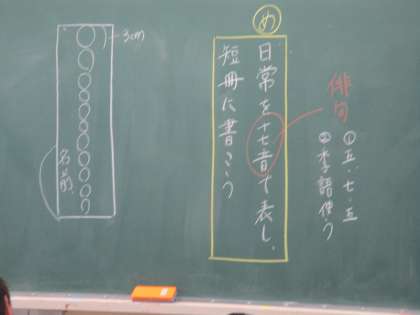 俳句
①五・七・五
②季語使う
め
日常を十七音で表し、
短冊に書こう
3cm
名前